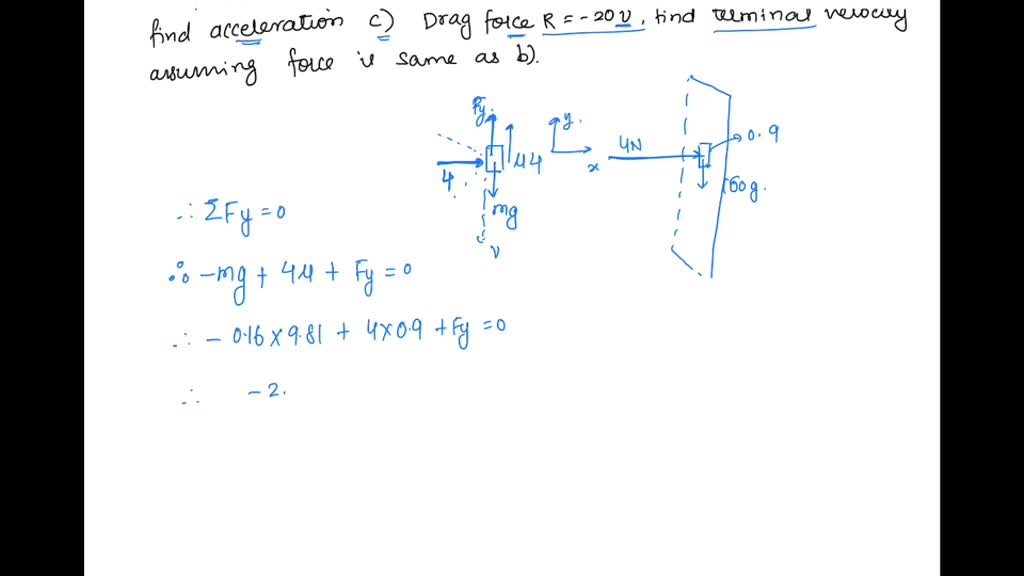 find acceleration c) Drag force R = -20v, find terminal velocity
assuming force is same as b).
Fy
y.
4N
0.9
4
μ4
x
mg
160g.
v
∴ ΣFy = 0
∴ -mg + 4μ + Fy = 0
∴ - 0.16 × 9.81 + 4×0.9 + Fy = 0
∴ -2.